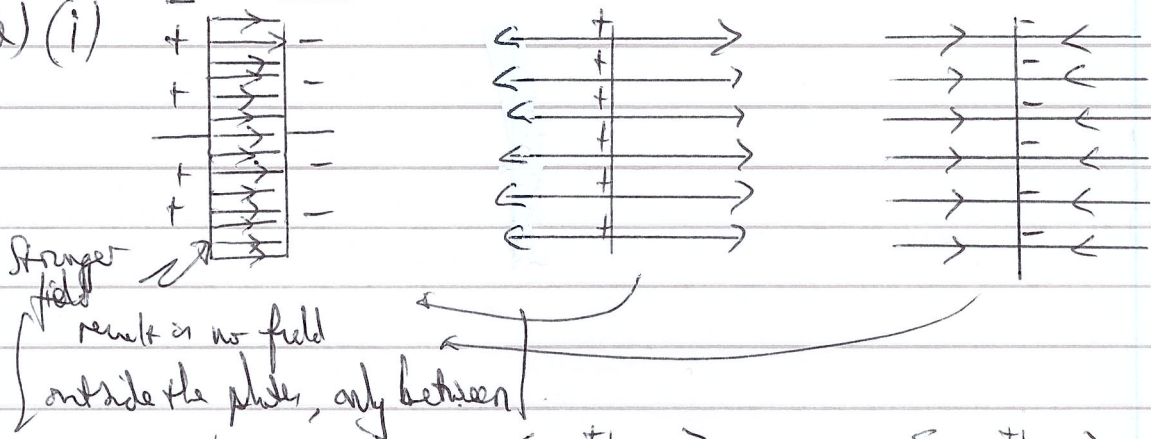 a) (i)
Stronger
field
result is no field
outside the plates, only between